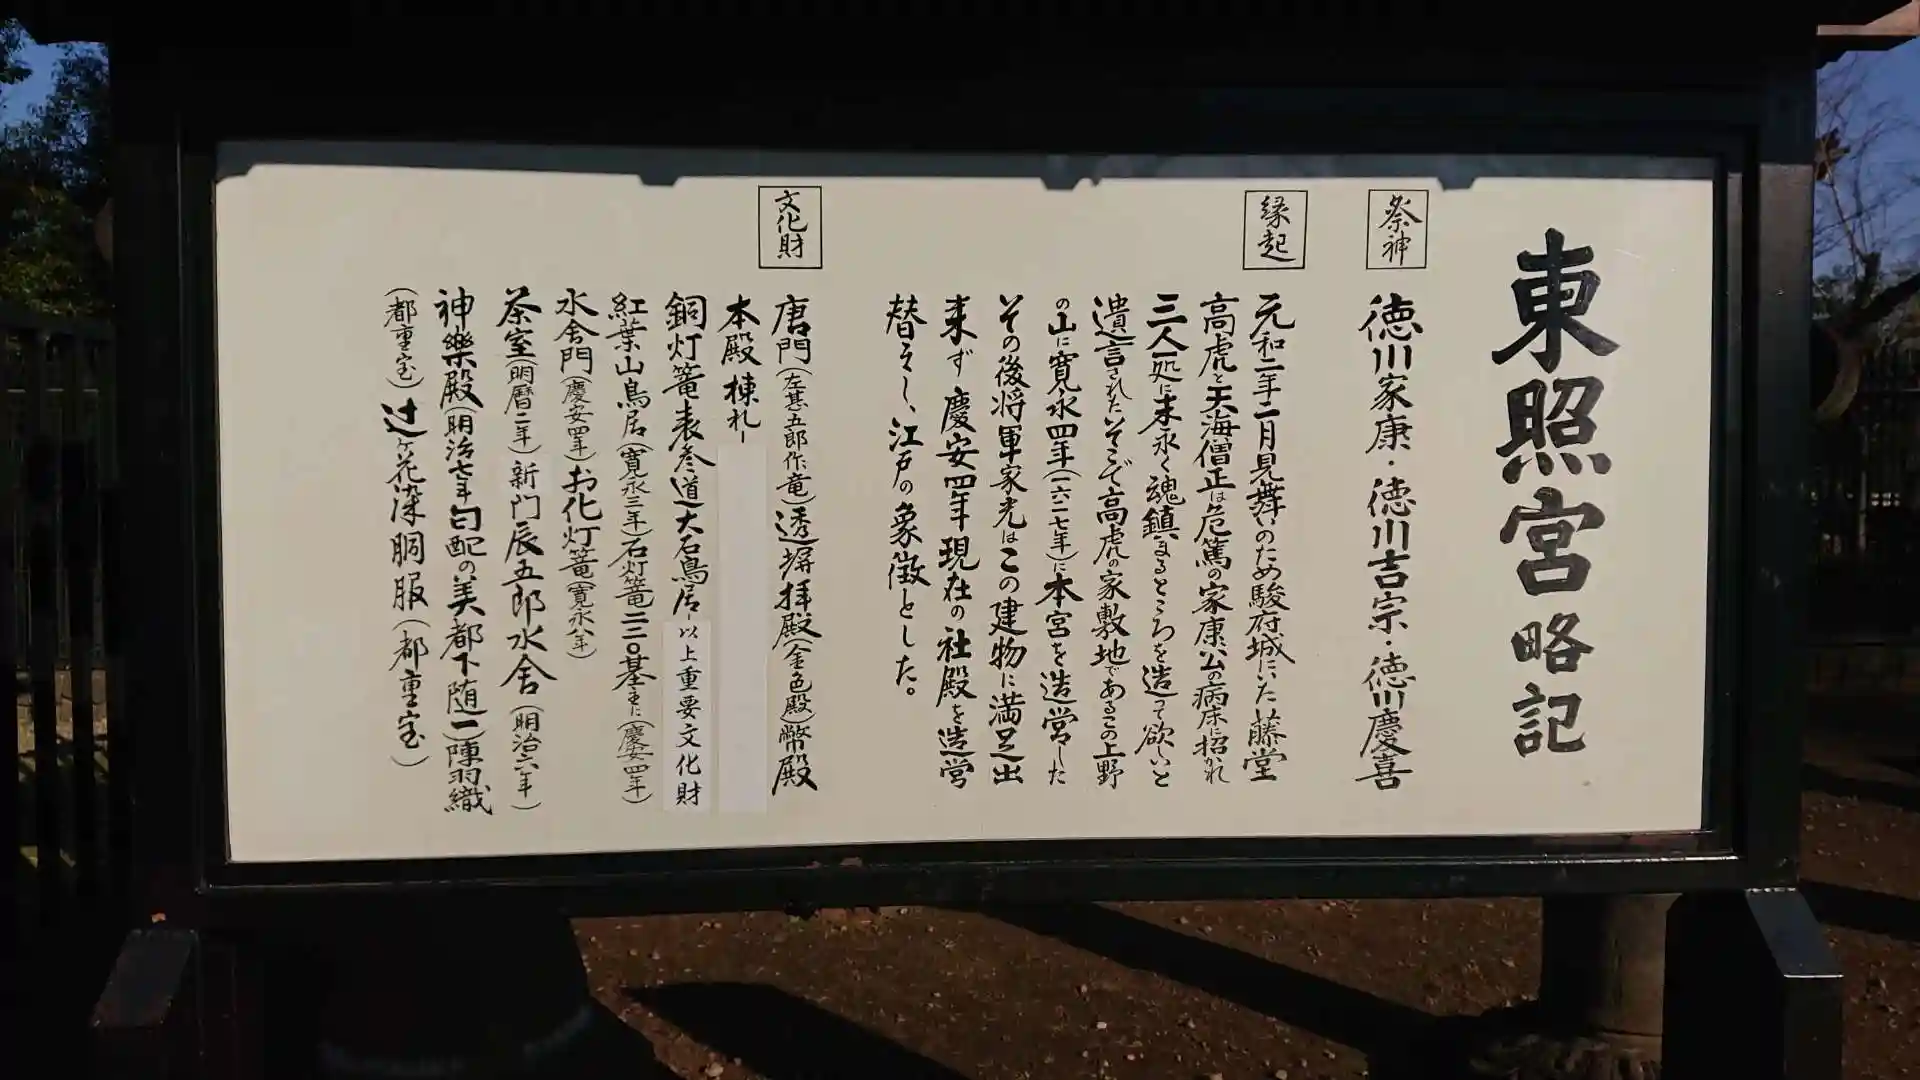 東照宮略記
祭神
徳川家康・徳川吉宗・徳川慶喜
縁起
元和二年二月見舞いのため駿府城にいた藤堂
高虎と天海僧正は危篤の家康公の病床に招かれ
三人一処に末永く魂鎮まるところを造って欲しいと
遺言されたいそこで高虎の家敷地であるこの上野
の山に寛永四年(一六二七年)に本宮を造営した
その後将軍家光はこの建物に満足出
来ず慶安四年現在の社殿を造営
替えし、江戸の象徴とした。
文化財
唐門(左甚五郎作竜)透塀拝殿(金色殿)幣殿
本殿棟札
銅灯篭表参道大石鳥居 以上重要文化財
紅葉山鳥居(寛永三年)石灯篭二三〇基主に(慶安四年)
水舎門(慶安四年)お化灯篭(寛永八年)
茶室(明暦二年)新門辰五郎水舎(明治六年)
神樂殿(明治七年勾配の美都下随一)陣羽織
(都重宝)辻ヶ花染胴服(都重宝)